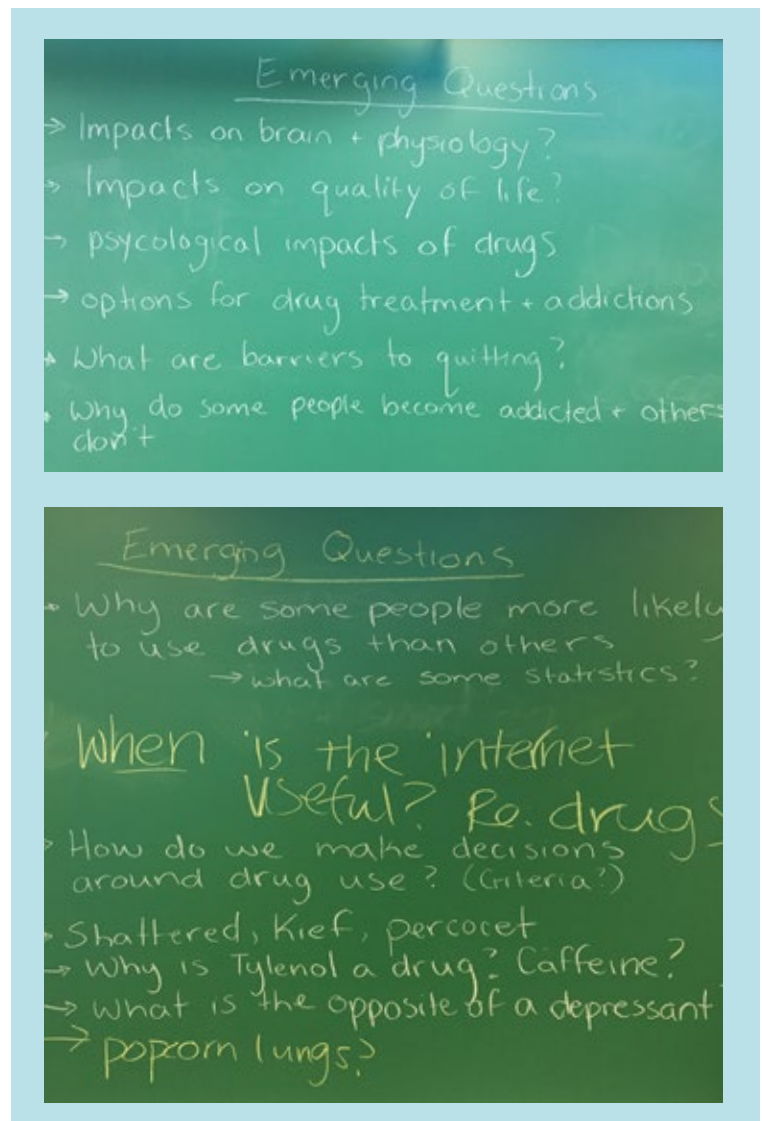 Emerging Questions
→ Impacts on brain + physiology?
→ Impacts on quality of life?
→ psycological impacts of drugs
→ options for drug treatment + addictions
→ What are barriers to quitting?
• Why do some people become addicted + others
don't
Emerging Questions
→ Why are some people more likely
to use drugs than others
→ what are some statistics?
When is the internet
Useful? Re. drugs
→ How do we make decisions
around drug use? (Criteria?)
→ Shattered, Kief, percocet
→ Why is Tylenol a drug? Caffeine?
→ What is the opposite of a depressant
→ popcorn lungs?